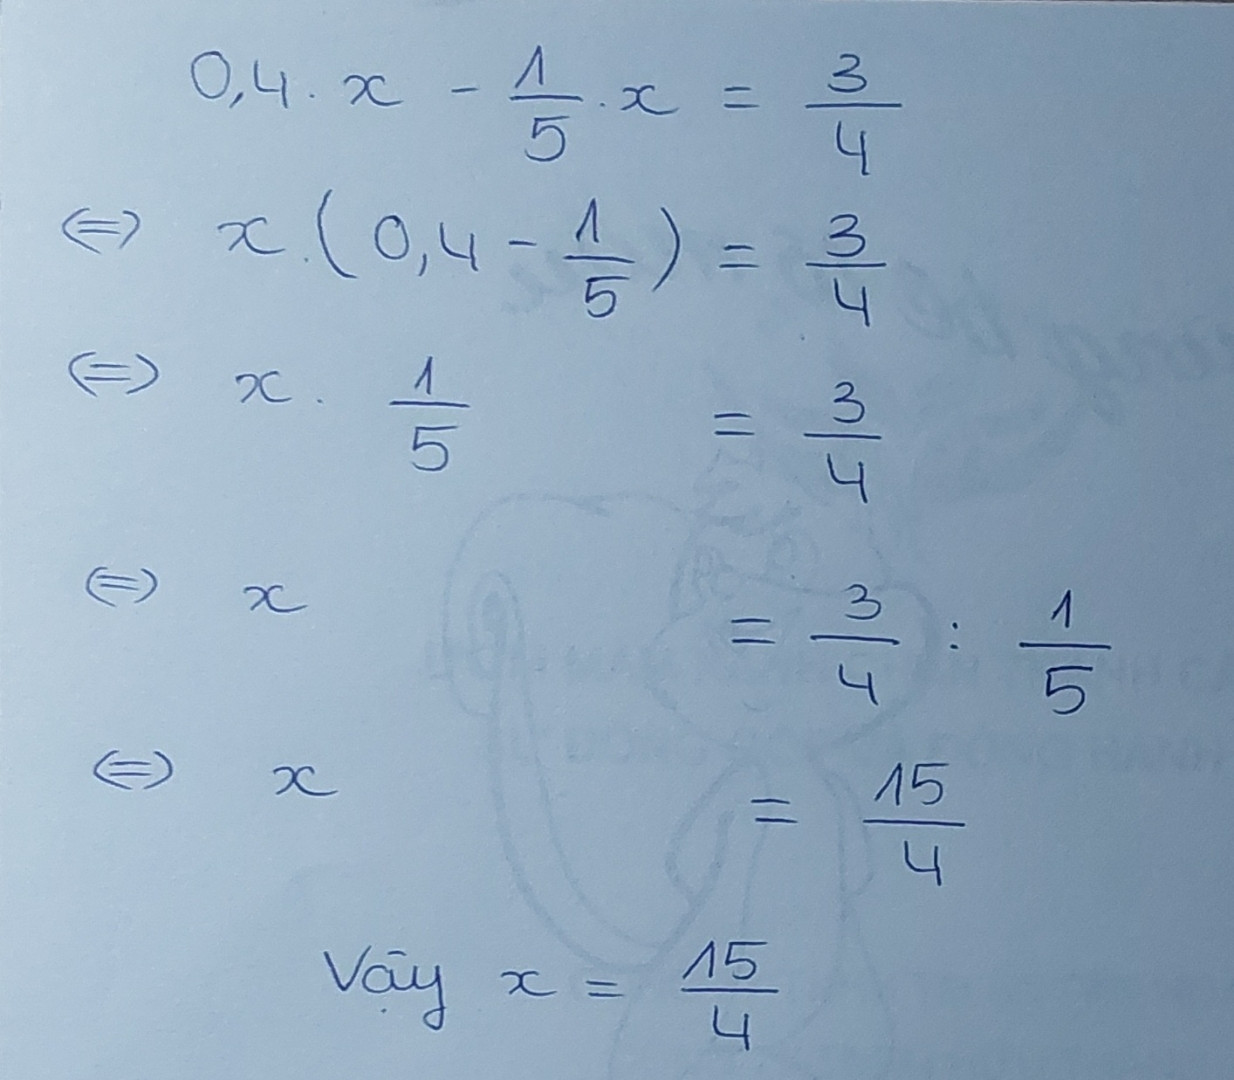 0,4 . x - 1/5 . x = 3/4
⇔ x . ( 0,4 - 1/5 ) = 3/4
⇔ x . 1/5 = 3/4
⇔ x = 3/4 : 1/5
⇔ x = 15/4
Vậy x = 15/4